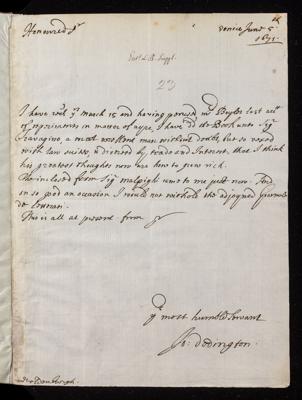 Honoured Sr
Venice June 5
1671
23
I have recd yr March 15 and having perused Mr Boyles last act
of
in matter of ayre, I have
the Book unto Sigr
Travagino a most worthy man without doubt, but so vexed
with law suites & diverted by trade and Interest, that I think
his greatest thoughts now are how to grow rich.
The inclosed from Sigr Malpighi came to me just now. And
on so good an occasion I would not withold the adjoyned Giornale
de Letterati.
This is all at present from Sr
yr most humble Servant
Jo: Dodington.